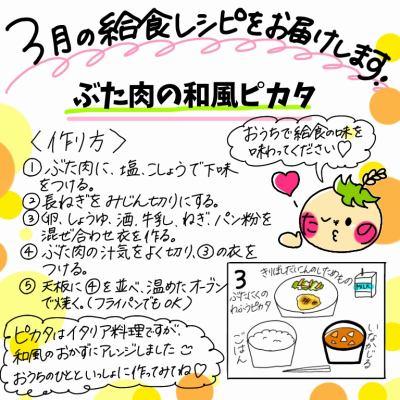 3月の給食レシピをお届けします!
ぶた肉の和風ピカタ
<作り方>
① ぶた肉に、塩、こしょうで下味
をつける。
② 長ねぎをみじん切りにする。
③ 卵、しょうゆ、酒、牛乳、ねぎ、パン粉を
混ぜ合わせ衣を作る。
④ ぶた肉の汁気をよく切り、③の衣を
つける。
⑤ 天板に④を並べ、温めたオーブン
で焼く。(フライパンでもOK)
おうちで給食の味を
味わってください♡
た の
3
きりぼしだいこんのしためもの
MILK
ぶたにくの
わふうピカタ
ごはん
いなかじる
ピカタはイタリア料理ですが、
和風のおかずにアレンジしました
おうちのひとといっしょに作ってみてね♡